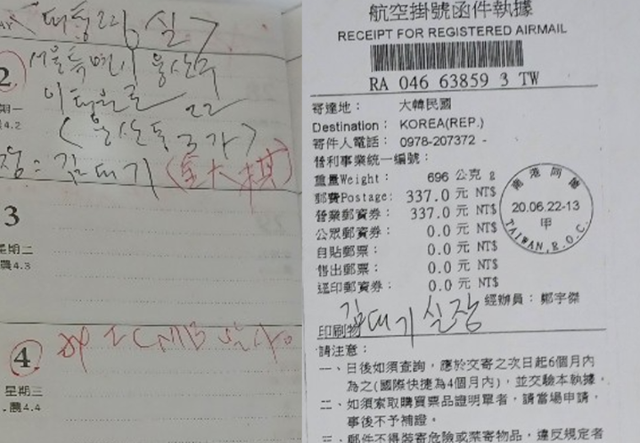 대통령실
서울특별시 용산구
이태원로 22
(용산동 3가)
실장: 김대기 (金大棋)
2
3
星期二
農4.3
4
星期三
農4.4
航空掛號函件執據
RECEIPT FOR REGISTERED AIRMAIL
RA 046 63859 3 TW
寄達地： 大韓民國
Destination: KOREA(REP.)
寄件人電話： 0978-207372 -
營利事業統一編號：
重量Weight: 696 公克 g
郵費Postage: 337.0 元 NT$
營業郵資券： 337.0 元 NT$
公眾郵資券： 0.0 元 NT$
自貼郵票： 0.0 元 NT$
售出郵票： 0.0 元 NT$
逕印郵資券： 0.0 元 NT$
20.06.22-13
甲
TAIWAN,R.O.C.
김대기 실장
經辦員：鄭宇傑
印刷物
請注意：
一、日後如須查詢，應於交寄之次日起6個月內
為之(國際快捷為4個月內)，並交驗本執據。
二、如須索取購買票品證明單者，請當場申請，
事後不予補證。
三、郵件不得裝寄危險或禁寄物品，違反規定者